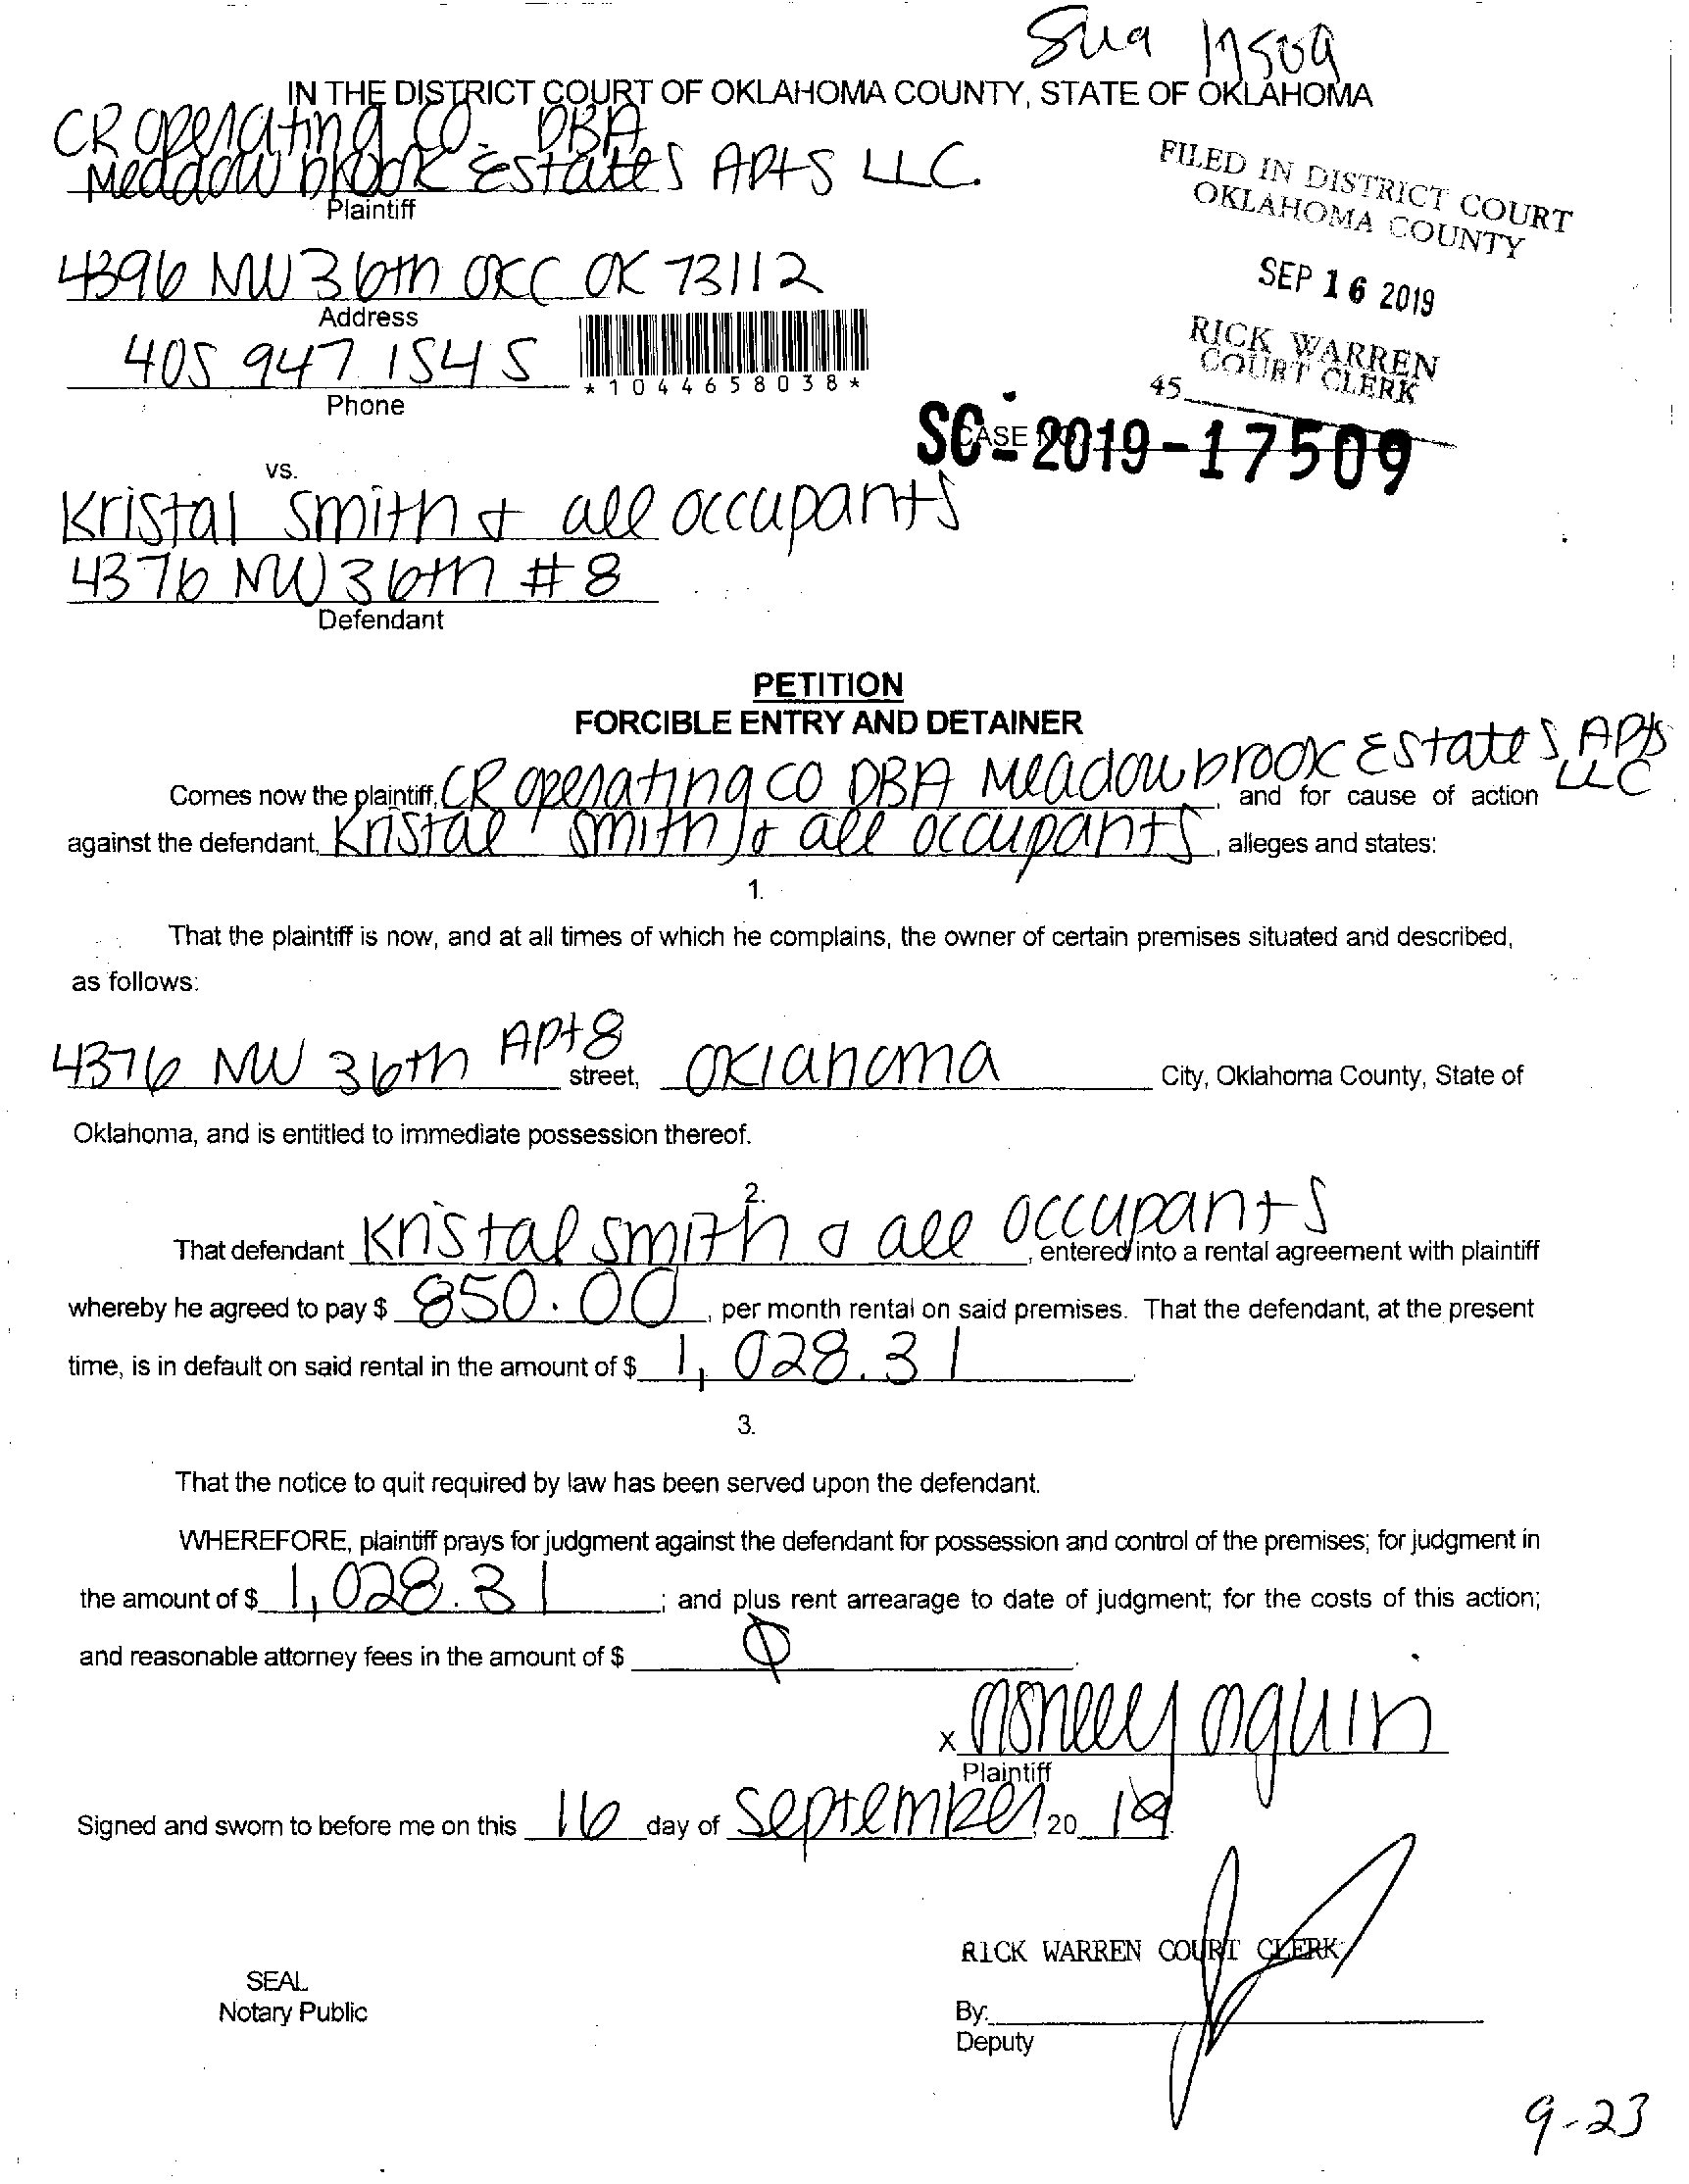 IN THE DISTRICT COURT OF OKLAHOMA COUNTY, STATE OF OKLAHOMA
CR Operating Co. DBA
Meadowbrook Estates Apts LLC.
Plaintiff
FILED IN DISTRICT COURT
OKLAHOMA COUNTY
SEP 16 2019
RICK WARREN
COURT CLERK
45
4396 NW 36th OKC OK 73112
Address
405 947 1545
Phone
*1044658038*
CASE NO.
SC-2019-17509
vs.
Kristal Smith & all occupants
4376 NW 36th #8
Defendant
PETITION
FORCIBLE ENTRY AND DETAINER
Comes now the plaintiff, CR Operating CO DBA Meadowbrook Estates Apts LLC, and for cause of action
against the defendant, Kristal Smith & all occupants, alleges and states:
1.
That the plaintiff is now, and at all times of which he complains, the owner of certain premises situated and described,
as follows:
4376 NW 36th Apt 8 street, Oklahoma City, Oklahoma County, State of
Oklahoma, and is entitled to immediate possession thereof.
2.
That defendant Kristal Smith & all occupants, entered into a rental agreement with plaintiff
whereby he agreed to pay $ 850.00, per month rental on said premises. That the defendant, at the present
time, is in default on said rental in the amount of $ 1,028.31.
3.
That the notice to quit required by law has been served upon the defendant.
WHEREFORE, plaintiff prays for judgment against the defendant for possession and control of the premises; for judgment in
the amount of $ 1,028.31; and plus rent arrearage to date of judgment; for the costs of this action;
and reasonable attorney fees in the amount of $ Ø.
x
Plaintiff
Signed and sworn to before me on this 16 day of September, 20 19.
RICK WARREN COURT CLERK
SEAL
Notary Public
By:
Deputy
9-23